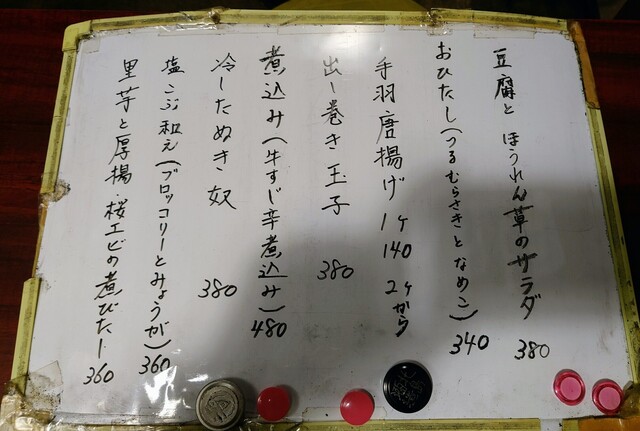 豆腐とほうれん草のサラダ 380
おひたし(つるむらさきとなめこ) 340
手羽唐揚げ 1ヶ 140 2ヶから
出し巻き玉子 380
煮込み(牛すじ辛煮込み) 480
冷したぬき奴 380
塩こぶ和え(ブロッコリーとみょうが) 360
里芋と厚揚・桜エビの煮びたし 360